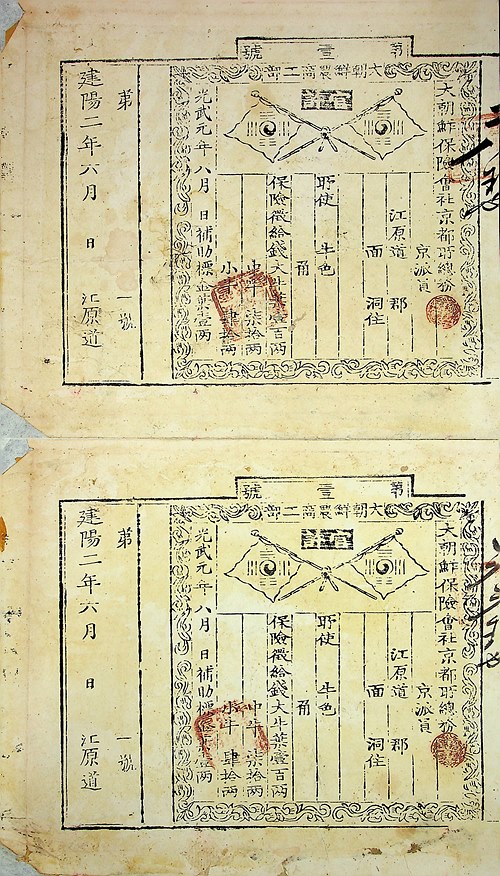 第壹號
大朝鮮農商工部
官許
大朝鮮保險會社京都所總務
京派員
江原道 郡
面 洞住
所使 牛色
角
保險徵給錢大牛葉壹百兩
中牛 柒拾兩
小牛 肆拾兩
光武元年八月 日補助標金葉壹兩
第 一號
建陽二年六月 日 江原道
第壹號
大朝鮮農商工部
官許
大朝鮮保險會社京都所總務
京派員
江原道 郡
面 洞住
所使 牛色
角
保險徵給錢大牛葉壹百兩
中牛 柒拾兩
小牛 肆拾兩
光武元年八月 日補助標金葉壹兩
第 一號
建陽二年六月 日 江原道